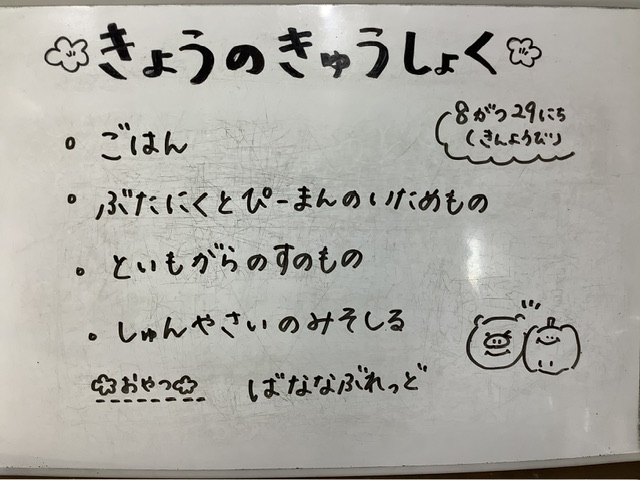 きょうのきゅうしょく
8がつ29にち
(きんようび)
・ごはん
・ぶたにくとぴーまんのいためもの
・といもがらのすのもの
・しゅんやさいのみそしる
おやつ ばななぶれっど